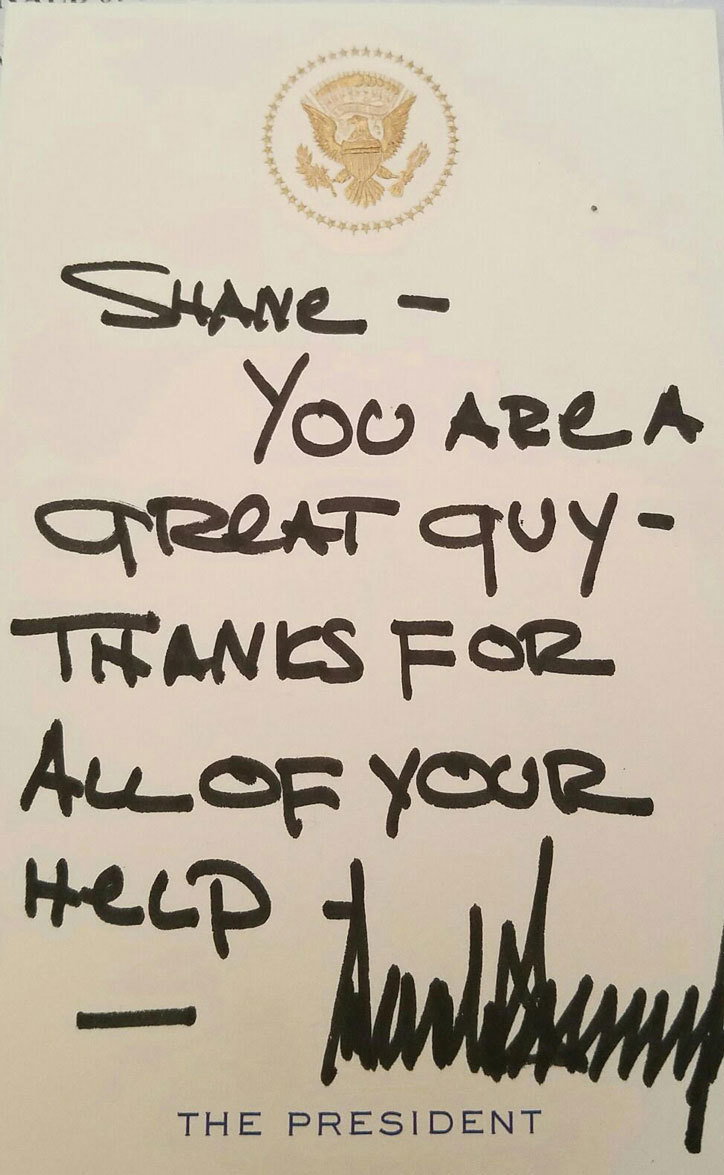 SHANE -
YOU ARE A
GREAT GUY -
THANKS FOR
ALL OF YOUR
HELP
—
THE PRESIDENT